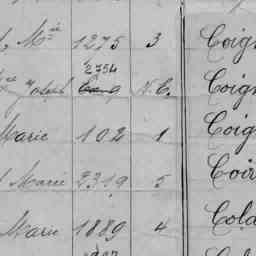 Mie 1275 3 Coig
2754
Joseph N.C. Coig
Marie 102 1 Coig
Marie 2319 5 Coir
Marie 1889 4 Cola